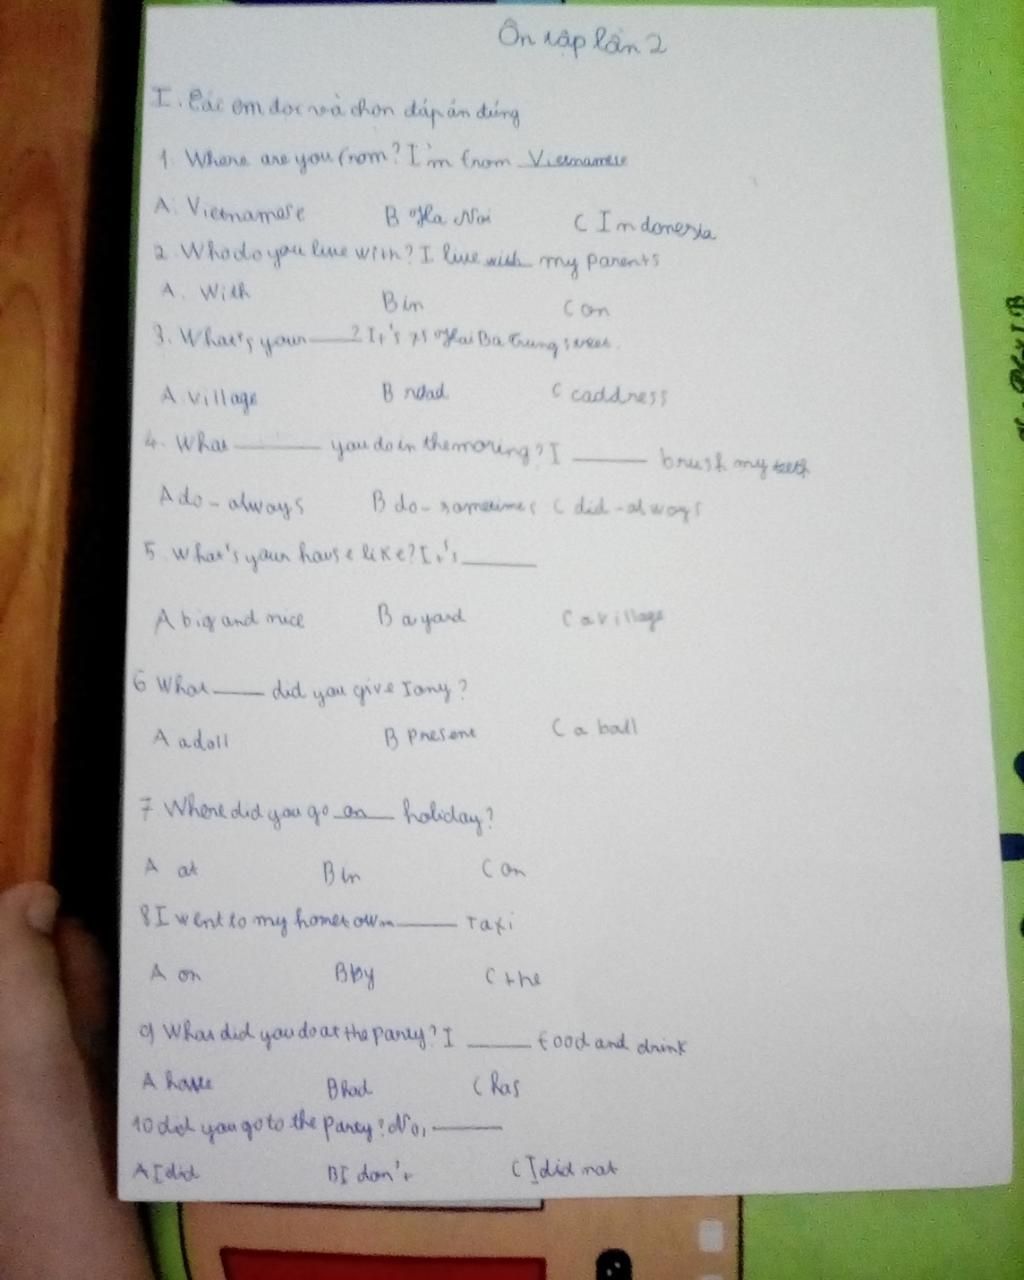 Ôn tập lần 2
I. Các em đọc và chọn đáp án đúng
1. Where are you from? I'm from Vietnamese
A. Vietnamese B Ha Noi C Indonesia
2. Who do you live with? I live with my parents
A. With B in C on
3. What's your ____? It's 75 Hai Ba Trung street.
A. village B road C caddress
4. What ____ you do in the moring? I ____ brush my teeth
A do - always B do - sometimes C did - always
5. What's your house like? It's ____
A big and nice B a yard C a village
6 What ____ did you give Tony?
A a doll B present C a ball
7 Where did you go on holiday?
A at B in C on
8 I went to my hometown ____ taxi
A on B by C the
9 What did you do at the party? I ____ food and drink
A have B had C has
10 did you go to the party? No, ____
A I did B I don't C I did not